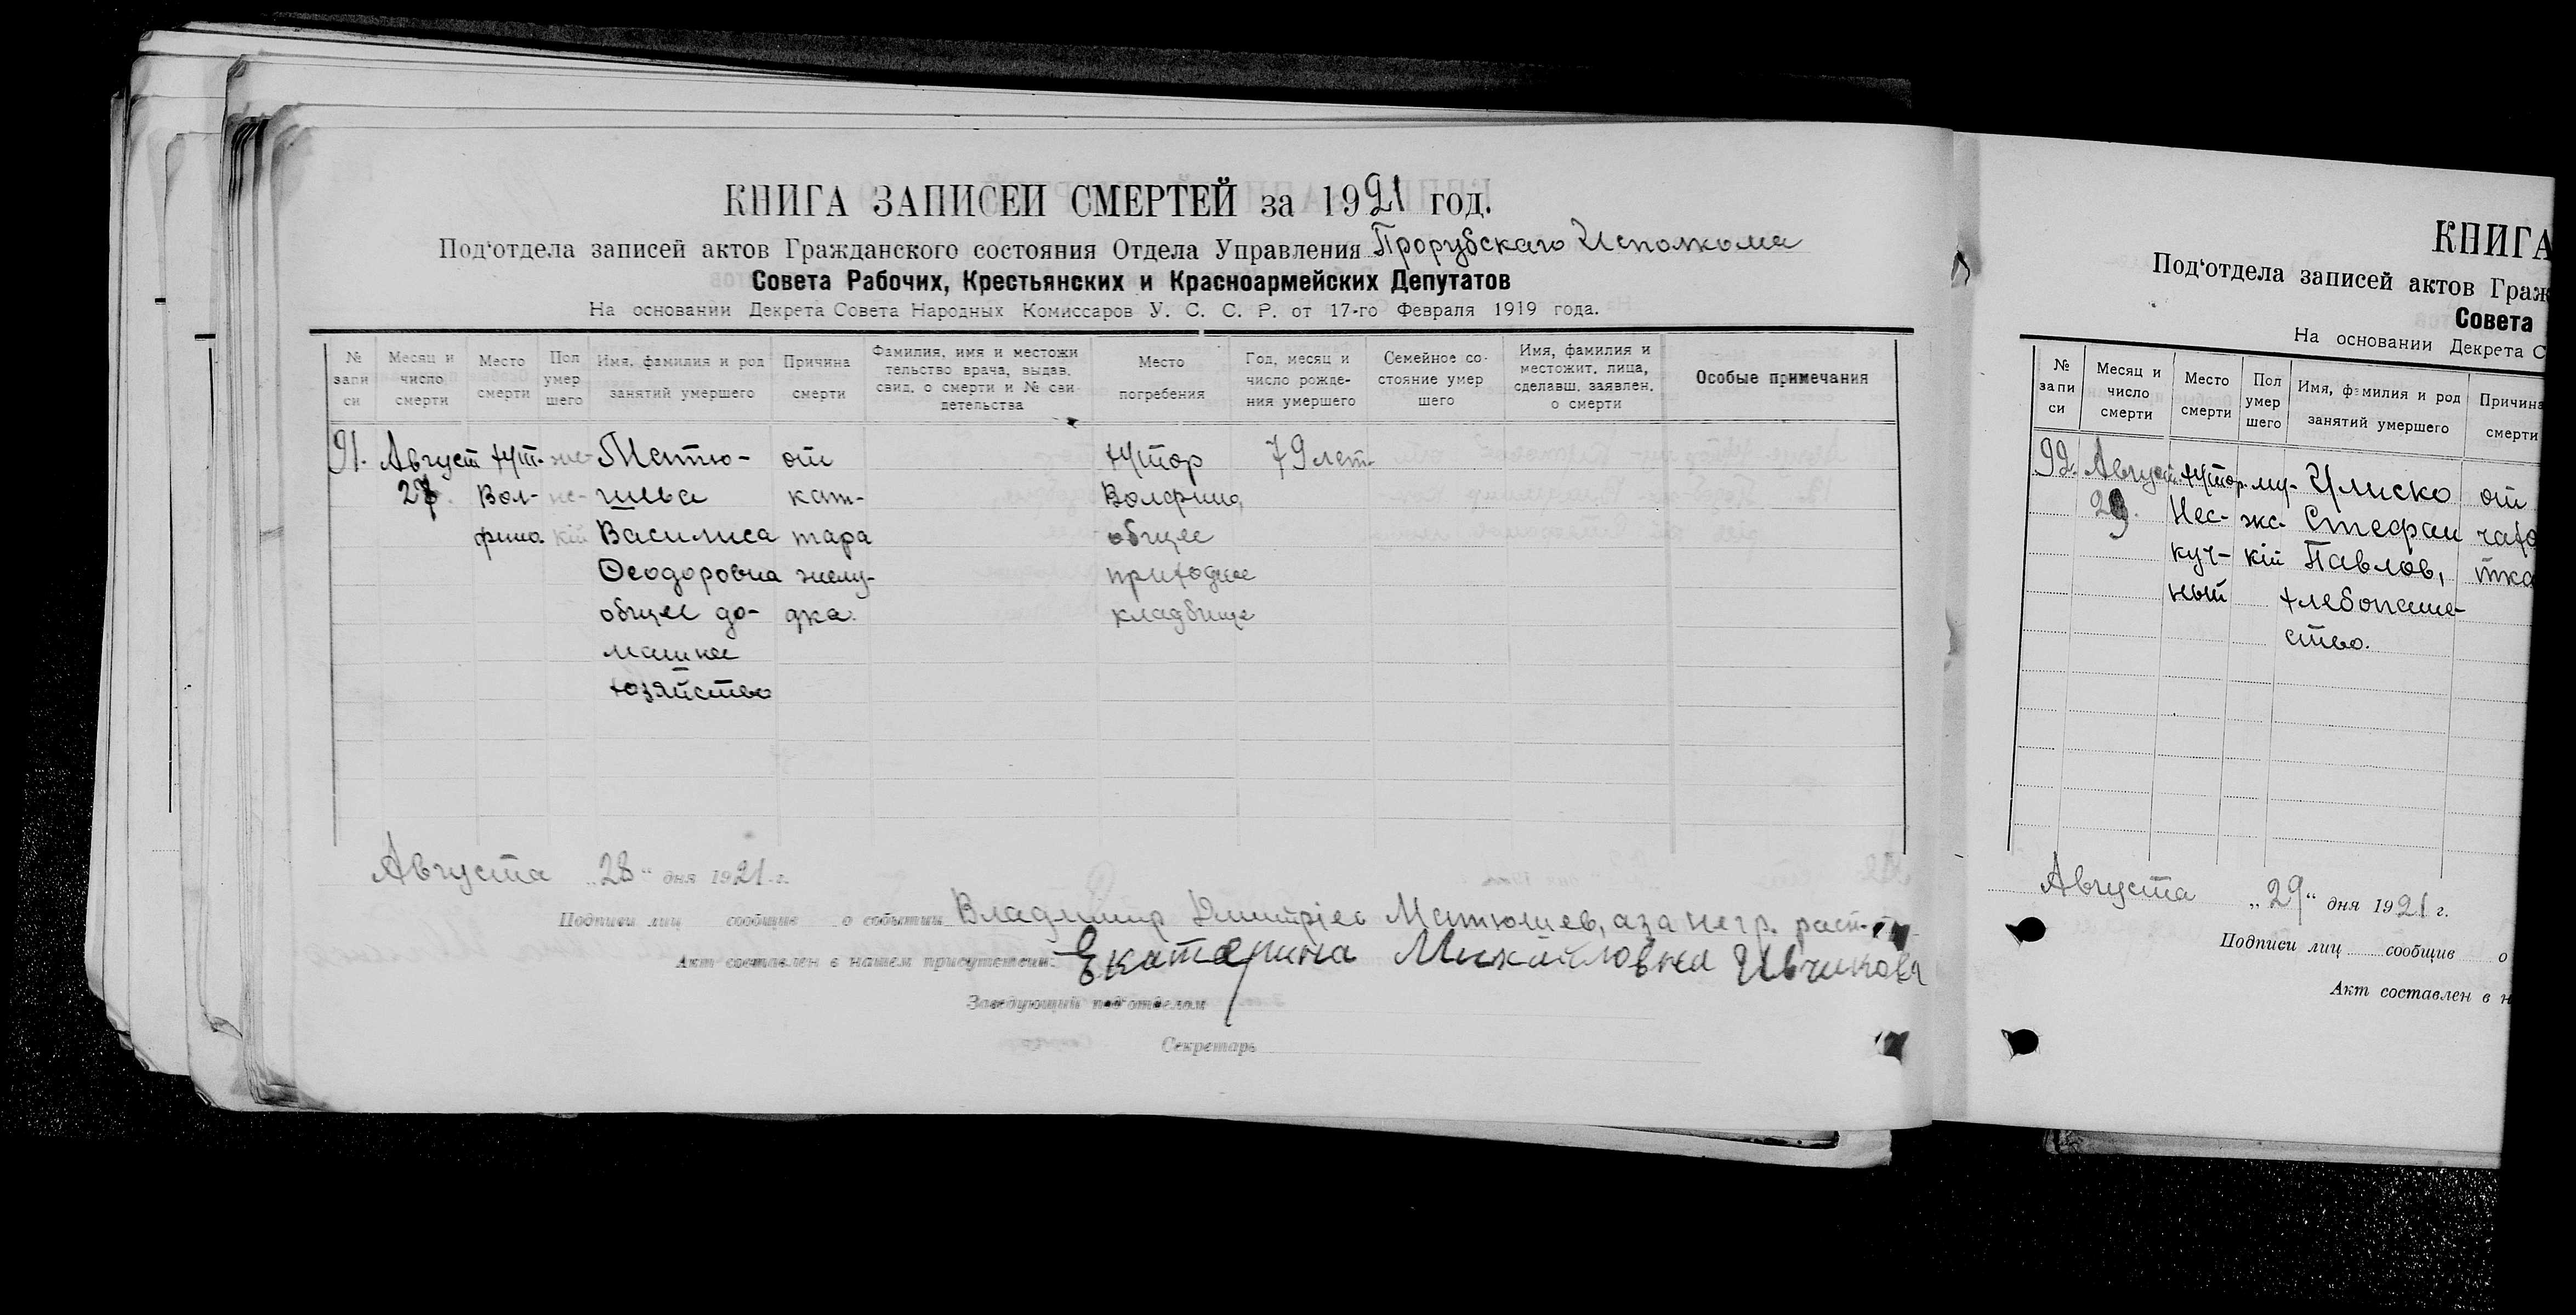 КНИГА ЗАПИСЕЙ СМЕРТЕЙ за 1921 год.
Под‘отдела записей актов Гражданского состояния Отдела Управления Прорубскаго Исполкома
Совета Рабочих, Крестьянских и Красноармейских Депутатов
На основании Декрета Совета Народных Комиссаров У. С. С. Р. от 17-го Февраля 1919 года.
№ запи си
Месяц и число смерти
Место смерти
Пол умер шего
Имя, фамилия и род занятий умершего
Причина смерти
Фамилия, имя и местожи тельство врача, выдав. свид. о смерти и № сви детельства
Место погребения
Год, месяц и число рожде- ния умершего
Семейное со- стояние умер шего
Имя, фамилия и местожит. лица, сделавш. заявлен. о смерти
Особые примечания
91. Август хут. же- Матю- от хутор 79 лет.
27. Вол- нс- шева кат- Волфино,
фино. кій Василиса тара общее
Феодоровна желу- приходное
общее до- дка. кладбище
машнее
хозяйство
Августа „28“ дня 1921 г.
Подписи лиц сообщив о событии Владимир Дмитріев Матюшев, а за негр. расп.
Акт составлен в нашем присутствии: Екатерина Михайловна Ивчикова
Заведующий под‘отделом
Секретарь
КНИГА
Под‘отдела записей актов Граж
Совета
На основании Декрета С
№ запи си
Месяц и число смерти
Место смерти
Пол умер шего
Имя, фамилия и род занятий умершего
Причина смерти
92. Август. хутор му- Улиско от
29. Нес- жс- Стефан чахо
куч- кій Павлов, тка
ный хлебопаше-
ство.
Августа „29“ дня 1921 г.
Подписи лиц сообщив о
Акт составлен в н